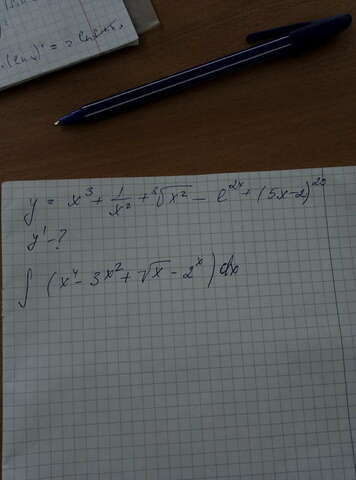 y = x³ + 1/x² + ³√x² - e^2x + (5x-2)^20
y' - ?
∫ (x⁴ - 3x² + √x - 2^x) dx